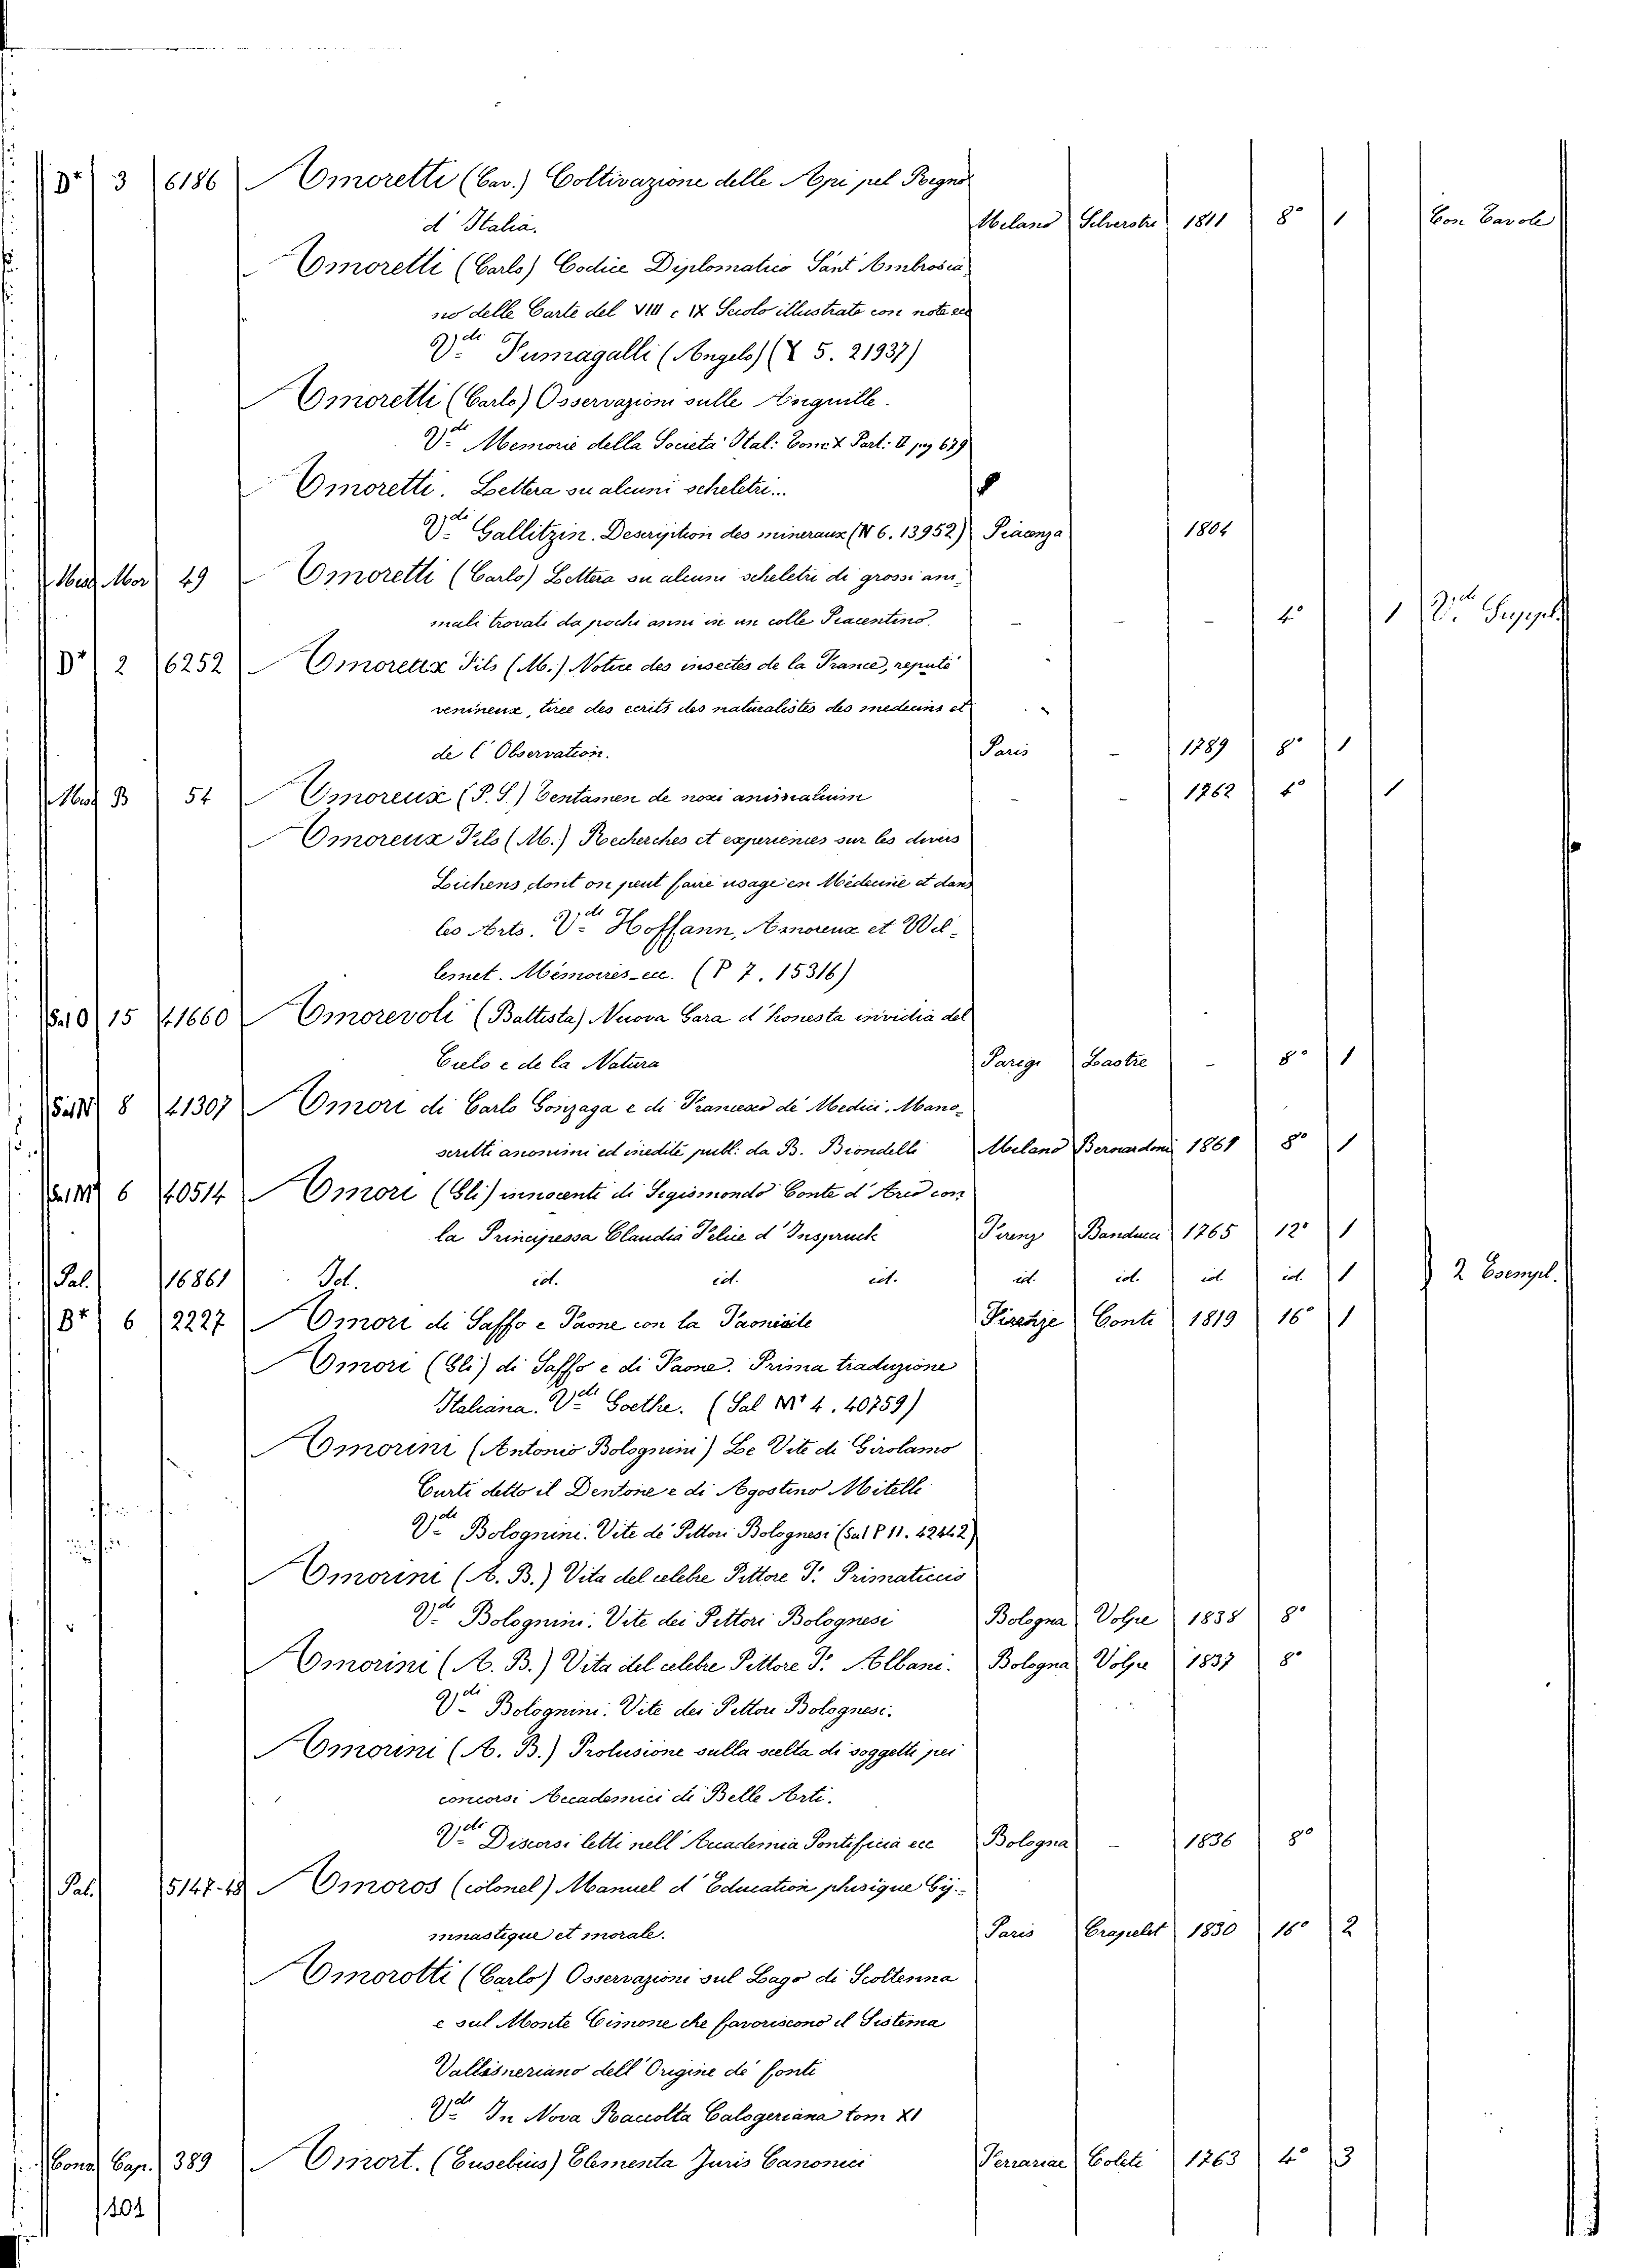 Dr 3 6186 Amoretti (Cav.) Coltivazione delle Api pel Regno
d'Italia. Milano Silvestre 1811 8° 1 Con Tavole
Amoretti (Carlo) Codice Diplomatico Sant'Ambrosia
no delle Carte del VIII e IX Secolo illustrate con note ecc
Vdi Fumagalli (Angelo) (X 5. 21937)
Amoretti (Carlo) Osservazioni sulle Anguille.
Vdi Memorie della Società Ital: Tom: X Part: II pag 679
Amoretti. Lettera su alcuni scheletri...
Vdi Gallitzin. Description des mineraux (N 6. 13952) Piacenza 1804
Misc Mor 49 Amoretti (Carlo) Lettera su alcuni scheletri di grossi ani
mali trovati da pochi anni in un colle Piacentino. - - - 4° 1 Vdi Suppl.
Dr 2 6252 Amoreux Fils (M.) Notice des insectes de la France, reputé
venineux, tirée des ecrits des naturalistes des medecins et
de l'Observation. Paris - 1789 8° 1
Misc B 54 Amoreux (P. S.) Tentamen de noxi animalium - - 1762 4° 1
Amoreux Fils (M.) Recherches et experiences sur les divers
Lichens, dont on peut faire usage en Médecine et dans
les Arts. Vdi Hoffann, Amoreux et Wil-
lemet. Mémoires-ecc. (P 7. 15316)
Sal O 15 41660 Amorevoli (Battista) Nuova Gara d'honesta invidia del
Cielo e de la Natura Parigi Lastre - 8° 1
Sal N 8 41307 Amori di Carlo Gonzaga e di Francesco de Medici. Mano-
scritti anonimi ed inediti publ: da B. Biondelli Milano Bernardoni 1861 8° 1
Sal M 6 40514 Amori (Gli) innocenti di Sigismondo Conte d'Arco con
la Principessa Claudia Felice d'Inspruck Firenz Banducci 1765 12° 1
Pal. 16861 Id. id. id. id. id. id. id. id. 1 2 Esempl.
Br 6 2227 Amori di Saffo e Faone con la Faoniaile Firenze Conti 1819 16° 1
Amori (Gli) di Saffo e di Faone. Prima traduzione
Italiana. Vdi Goethe. (Sal M 4. 40759)
Amorini (Antonio Bolognini) Le Vite di Girolamo
Curti detto il Dentone e di Agostino Mitelli
Vdi Bolognini. Vite de' Pittori Bolognesi (Sal P 11. 42442)
Amorini (A. B.) Vita del celebre Pittore F. Primaticcio
Vdi Bolognini. Vite dei Pittori Bolognesi Bologna Volpe 1838 8°
Amorini (A. B.) Vita del celebre Pittore F. Albani. Bologna Volpe 1837 8°
Vdi Bolognini. Vite dei Pittori Bolognesi.
Amorini (A. B.) Prolusione sulla scelta di soggetti pei
concorsi Accademici di Belle Arti.
Vdi Discorsi letti nell'Accademia Pontificia ecc Bologna - 1836 8°
Pal. 15147-48 Amoros (colonel) Manuel d'Education phisique Gij-
mnastique et morale. Paris Crapelet 1830 16° 2
Amorotti (Carlo) Osservazioni sul Lago di Scoltenna
e sul Monte Cimone che favoriscono il Sistema
Vallisneriano dell'Origine de' fonti
Vdi In Nova Raccolta Calogeriana tom XI
Cons Cap. 389 Amort. (Eusebius) Elementa Juris Canonici Ferrariae Coleti 1763 4° 3